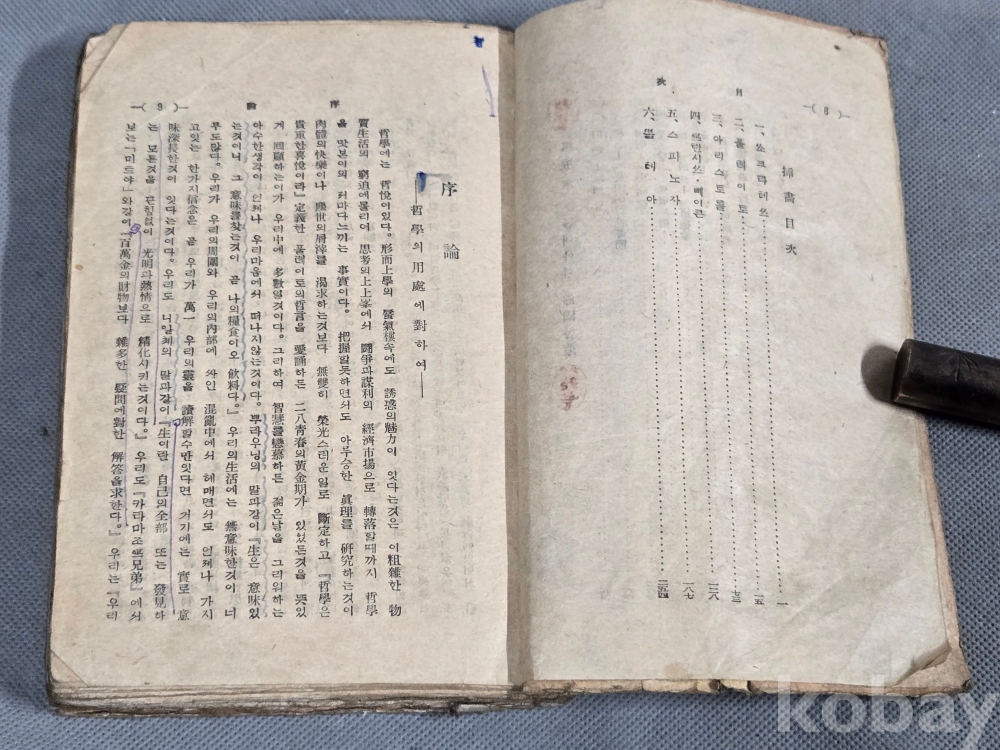 目次
揷畵目次
一、쏘크라테쓰 一
二、플레이토 一五
三、아리스토틀
四、프란시쓰·베이콘
五、스피노자 一八七
六、볼테아 二五四
序論
—( 9 )—
序論
——哲學의用處에對하여——
哲學에는 哲悅이있다。形而上學의 蜃氣樓속에도 誘惑의魅力이 잇다는것은 이粗雜한 物
質生活의 窮迫에몰리어 思考의上上峯에서 鬪爭과謀利의 經濟市場으로 轉落할때까지 哲學
을 맛본이의 저마다느끼는 事實이다。把握할듯하면서도 아무승한 眞理를 硏究하는것이
肉體의快樂이나 塵世의屑滓를 渴求하는것보다 無雙히 榮光스러운일로 斷定하고『哲學은
貴重한喜悅이라』定義한 플레이토의哲言을 愛誦하든 二八靑春의黃金期가 있었든것을 웃있
게 回顧하는이가 우리中에 多數일것이다。그리하여 智慧를戀慕하든 젊은날을 그리워하는
아수한생각이 언제나 우리마음에서 떠나지않는것이다。뿌라우닝의 말과같이『生은 意味있
는것이니 그 意味를찾는것이 곧 나의糧食이오 飮料다。』우리의生活에는 無意味한것이 너
무도많다。우리가 우리의周圍와 우리의內部에 싸인 混亂中에서 헤매면서도 언제나 가지
고잇는 한가지信念은 곧 우리가 萬一 우리의靈을 讀解할수만잇다면 거기에는 實로 意
味深長한것이 잇다는것이다。우리도 니일체의 말과같이『生이란 自己의全部 또는 發見하
는 모든것을 끈힘없이 光明과熱情으로 精化시키는것이다。』우리도『카라마조프兄弟』에서
보는「미드야」와같이『百萬金의財物보다 雜多한 疑問에對한 解答을求한다。』우리는『우리
kobay